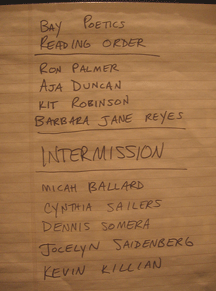 BAY POETICS
READING ORDER
RON PALMER
AJA DUNCAN
KIT ROBINSON
BARBARA JANE REYES
INTERMISSION
MICAH BALLARD
CYNTHIA SAILERS
DENNIS SOMERA
JOCELYN SAIDENBERG
KEVIN KILLIAN